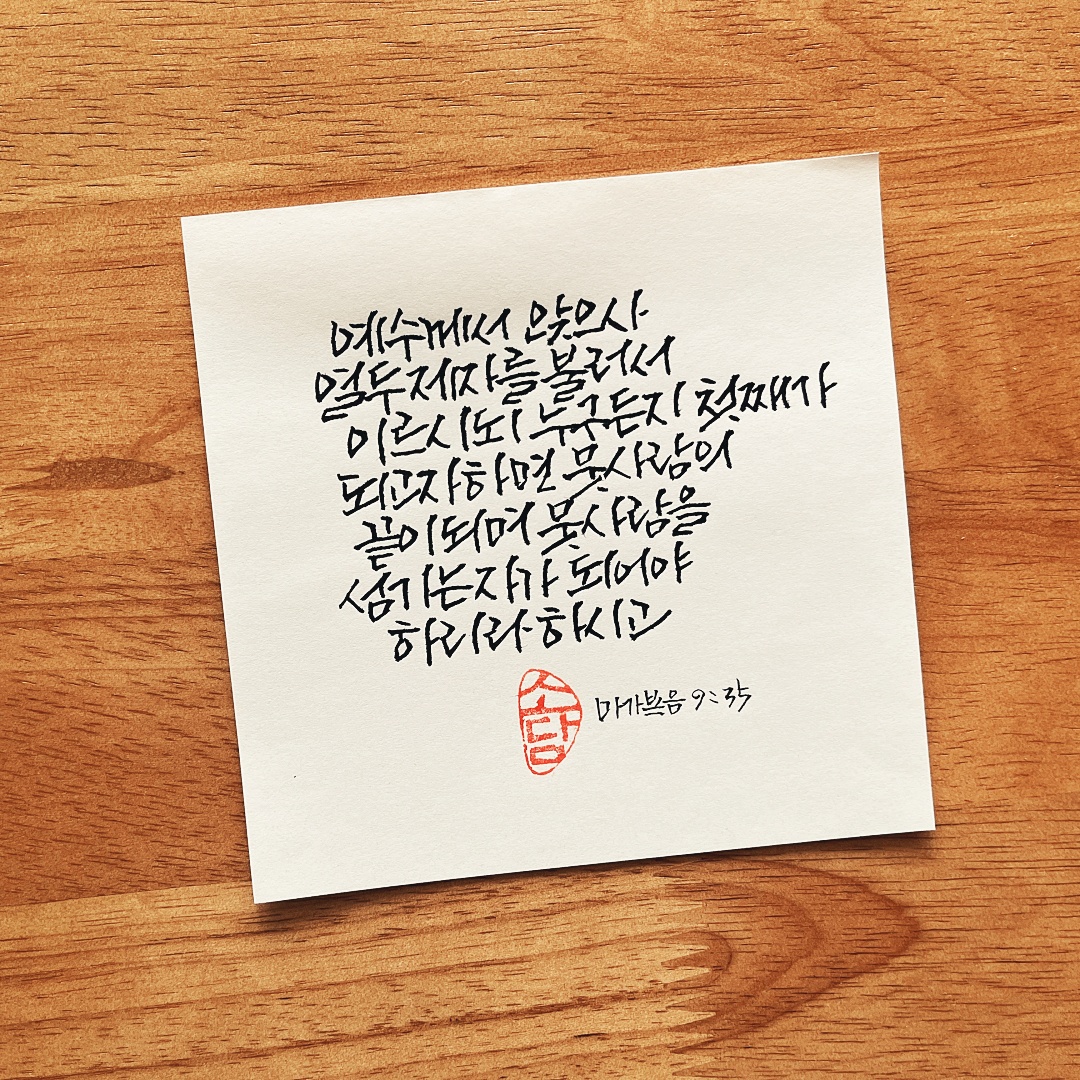 예수께서 앉으사
열두 제자를 불러서
이르시되 누구든지 첫째가
되고자 하면 뭇사람의
끝이 되며 뭇사람을
섬기는 자가 되어야
하리라 하시고
소담
마가복음 9:35